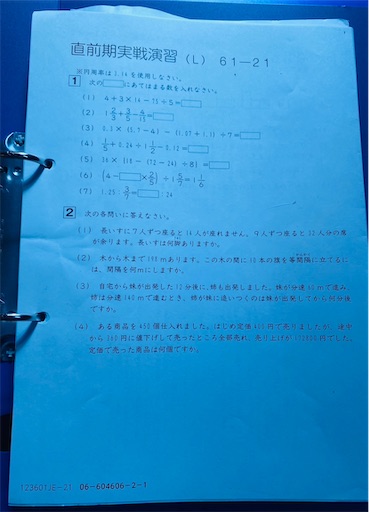 直前期実戦演習(L) 61-21
※円周率は3.14を使用しなさい。
1 次の□にあてはまる数を入れなさい。
(1) 4+3×14-75÷5=□
(2) 1 2/3+3/5-4/15=□
(3) 0.3×(5.7-4)-(1.07+1.)÷7=□
(4) 1/5+0.24÷1 1/2-0.12=□
(5) 36×{18-(72-24)÷8}=□
(6) (4-□×2/5)÷1 5/7=1 1/6
(7) 1.25:3/7=□:24
2 次の各問いに答えなさい。
(1) 長いすに7人ずつ座ると14人が座れません。9人ずつ座ると12人分の席
が余ります。長いすは何脚ありますか。
(2) 木から木まで198mあります。この木の間に10本の旗を等間隔に立てるに
は、間隔を何mにしますか。
(3) 自宅から妹が出発した12分後に、姉も出発しました。妹が分速60mで進み、
姉は分速140mで進むとき、姉が妹に追いつくのは妹が出発してから何分後
ですか。
(4) ある商品を450個仕入れました。はじめ定価4 0円で売りましたが、途中
から3 0円に値下げして売ったところ全部売れ、売り上げが 円でした。
定価で売った商品は何個ですか。
123601JE-21 06-604606-2-1